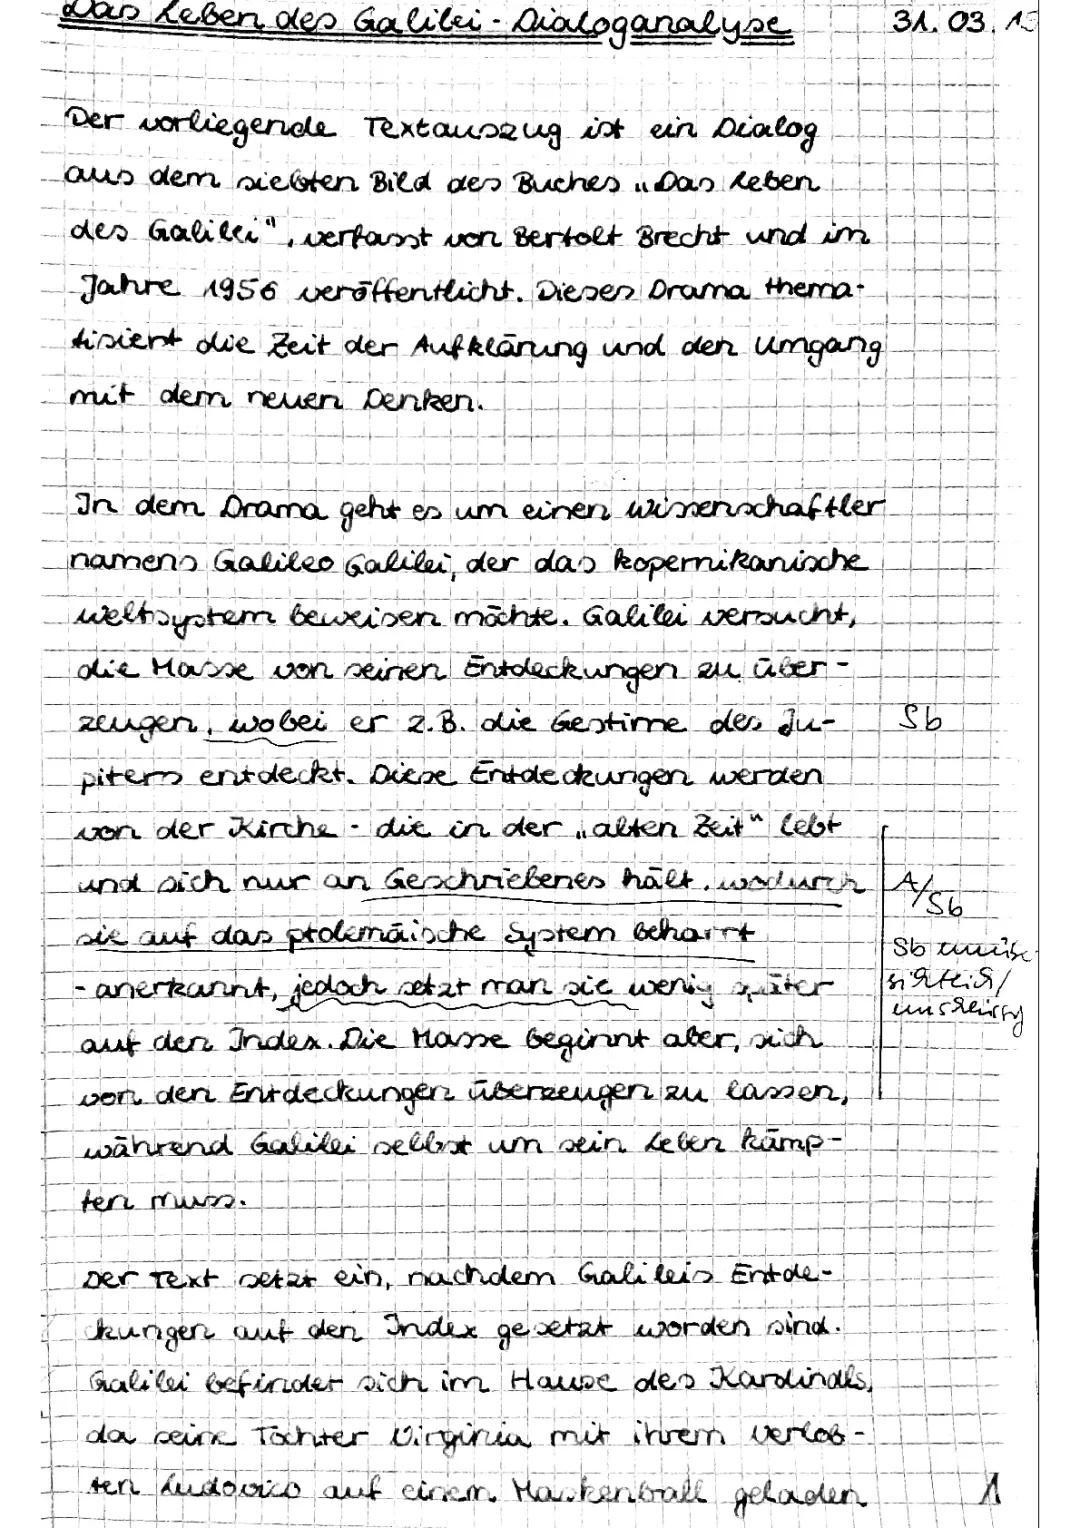 Das Leben des Galilei - Dialoganalyse 31.03.15
Der vorliegende Textauszug ist ein Dialog
aus dem siebten Bild des Buches „Das Leben
des Galilei", verfasst von Bertolt Brecht und im
Jahre 1956 veröffentlicht. Dieses Drama thema-
tisiert die Zeit der Aufklärung und den Umgang
mit dem neuen Denken.
In dem Drama geht es um einen Wissenschaftler
namens Galileo Galilei, der das kopernikanische
Weltsystem beweisen möchte. Galilei versucht,
die Masse von seinen Entdeckungen zu über-
zeugen, wobei er z.B. die Gestirne des Ju- Sb
piters entdeckt. Diese Entdeckungen werden
von der Kirche - die in der „alten Zeit" lebt
und sich nur an Geschriebenes hält, wodurch A/Sb
sie auf das ptolemäische System beharrt Sb
- anerkannt, jedoch setzt man sie wenig später
auf den Index. Die Masse beginnt aber, sich
von den Entdeckungen überzeugen zu lassen,
während Galilei selbst um sein Leben kämp-
fen muss.
Der Text setzt ein, nachdem Galileis Entde-
ckungen auf den Index gesetzt worden sind.
Galilei befindet sich im Hause des Kardinals,
da seine Tochter Virginia mit ihrem Verlob-
ten Ludovico auf einem Maskenball geladen 1